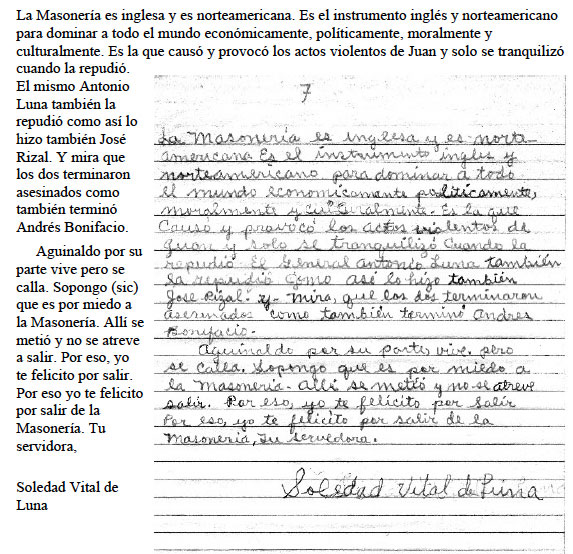 La Masonería es inglesa y es norteamericana. Es el instrumento inglés y norteamericano
para dominar a todo el mundo económicamente, políticamente, moralmente y
culturalmente. Es la que causó y provocó los actos violentos de Juan y solo se tranquilizó
cuando la repudió.
El mismo Antonio
Luna también la
repudió como así lo
hizo también José
Rizal. Y mira que
los dos terminaron
asesinados como
también terminó
Andrés Bonifacio.
Aguinaldo por su
parte vive pero se
calla. Sopongo (sic)
que es por miedo a
la Masonería. Allí se
metió y no se atreve
a salir. Por eso, yo
te felicito por salir.
Por eso yo te felicito
por salir de la
Masonería. Tu
servidora,
Soledad Vital de
Luna
7
La Masonería es inglesa y es norte
americana Es el instrumento inglés y
norteamericano para dominar a todo
el mundo economicamente políticamente,
moralmente y culturalmente. Es la que
Causó y provocó los actos violentos de
Juan y solo se tranquilizó Cuando la
repudió. El General Antonio Luna también
la repudió Como asé lo hizo también
José Rizal. y- mira, que los dos terminaron
asesinados como también terminó Andres
Bonifacio.
Aguinaldo por su parte, vive. pero
se calla. Sopongo que es por miedo a
la Masonería. Allí se metió y no se atreve
salir. Por eso, yo te felícito por Salir
Por eso, yo te felicito por salir de la
Masonería, su servedora.
Soledad Vital de Luna